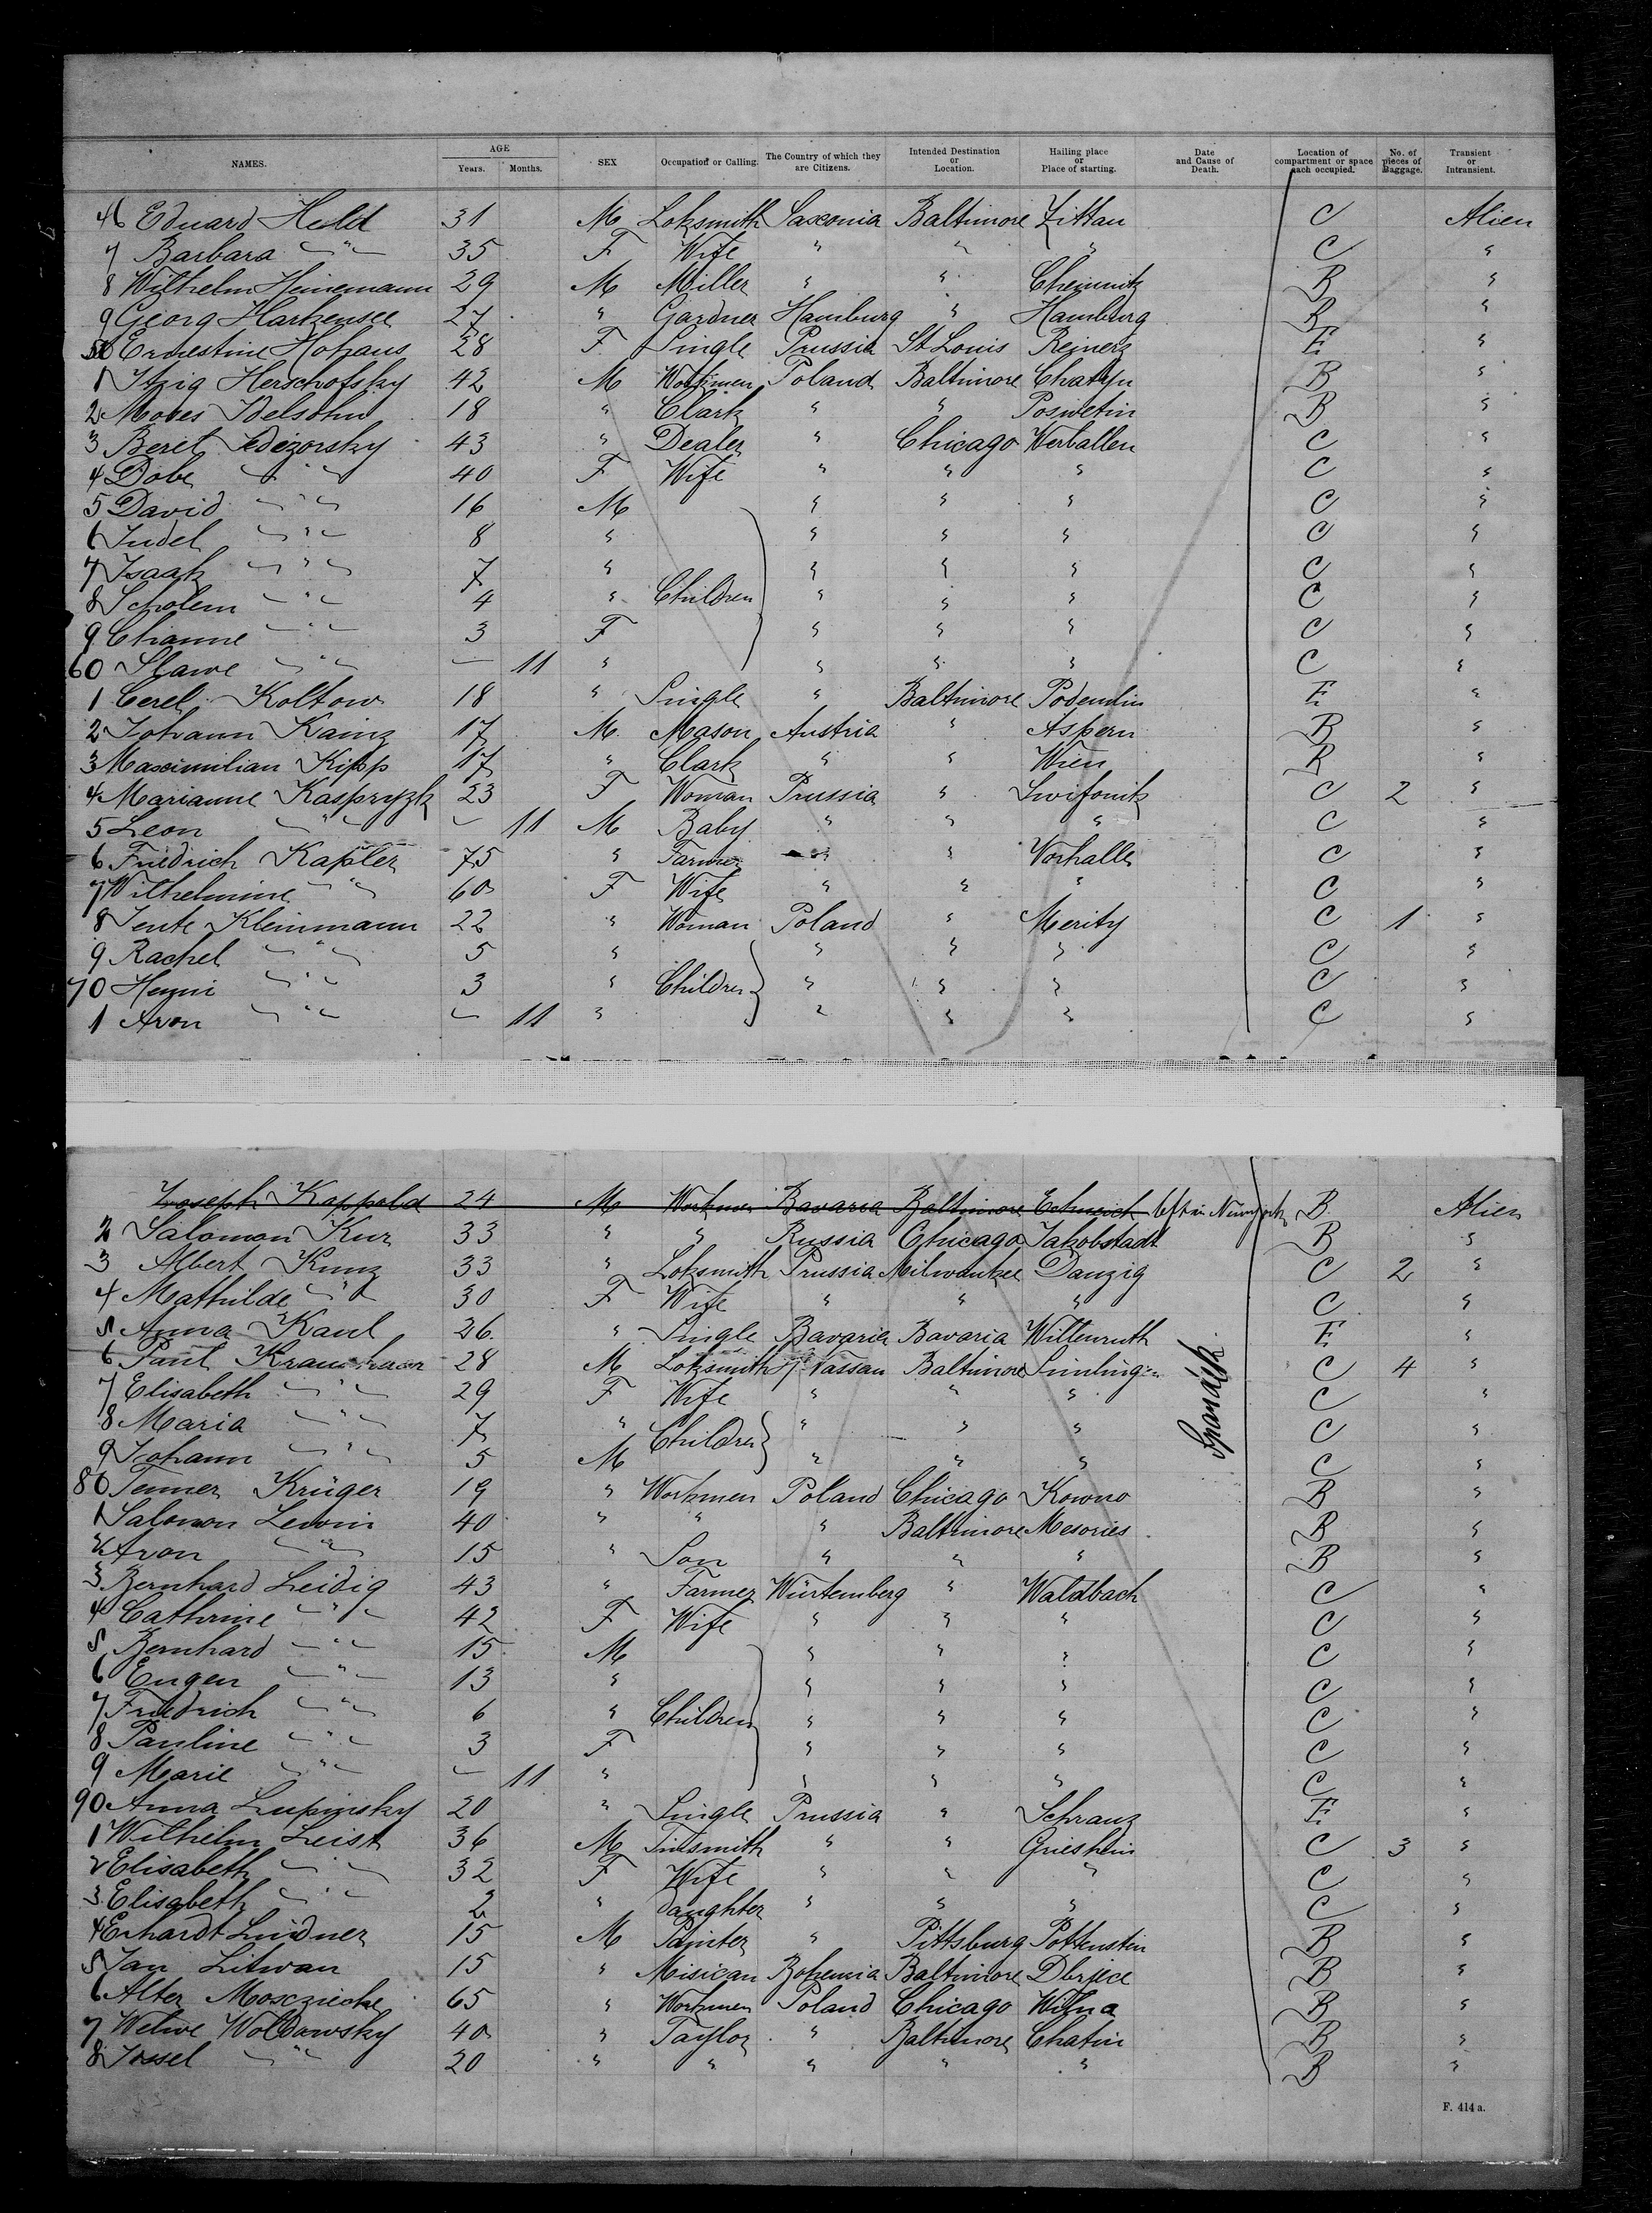 NAMES. AGE Years. Months. SEX Occupation or Calling. The Country of which they are Citizens. Intended Destination or Location. Hailing place or Place of starting. Date and Cause of Death. Location of compartment or space each occupied. No. of pieces of Baggage. Transient or Intransient.
46 Eduard Held 31 M Loksmith Saxonia Baltimore Zittau C Alien
7 Barbara " 35 F Wife " " " C "
8 Wilhelm Heinemann 29 M Miller " " Chemnitz B "
9 Georg Harkensee 27 " Gardner Hamburg " Hamburg B "
50 Ernestine Hohaus 28 F Single Prussia St Louis Reinerz E "
1 Itzig Herschofsky 42 M Workmen Poland Baltimore B "
2 Moses Idelsohn 18 " Clark " " Poswetin B "
3 Beret 43 " Dealer " Chicago Werballen C "
4 Dobe " 40 F Wife " " " C "
5 David " 16 M " " " C "
6 Judel " 8 " " " " C "
7 Isaak " 7 " " " " C "
8 Scholem " 4 " Children " " " C "
9 Channe " 3 F " " " C "
60 Slawe " — 11 " " " " C "
1 Cerel Koltow 18 " Single " Baltimore Podemlin E "
2 Johann Kainz 17 M Mason Austria " Aspern B "
3 Maximilian Kipp 17 " Clark " " Wien B "
4 Marianne Kaspryzk 23 F Woman Prussia " C 2 "
5 Leon " — 11 M Baby " " " C "
6 Friedrich Kapler 75 " Farmer " " Vorhalle C "
7 Wilhelmine " 60 F Wife " " " C "
8 Jente Kleinmann 22 " Woman Poland " Merity C 1 "
9 Rachel " 5 " " " " C "
70 " 3 " Children " " " C "
1 Aron " — 11 " " " " C "
Joseph Kappold 24 M Workmen Bavaria Baltimore left in B Alien
2 Salomon Kur 33 " " Russia Chicago Jakobstadt B "
3 Albert Kunz 33 " Loksmith Prussia Milwaukee Danzig C 2 "
4 Mathilde " 30 F Wife " " " C "
5 Anna Kaul 26 " Single Bavaria Bavaria Wittenruth E "
6 Paul Kraushaar 28 M Loksmith H. Nassau Baltimore C 4 "
7 Elisabeth " 29 F Wife " " " C "
8 Maria " 7 " Children " " " C "
9 Johann " 5 M " " " C "
80 Krüger 19 " Workmen Poland Chicago Kowno B "
1 Salomon Lewin 40 " " " Baltimore Mesories B "
2 Aron " 15 " Son " " " B "
3 Bernhard Leidig 43 " Farmer Würtemberg " Waldbach C "
4 Cathrine " 42 F Wife " " " C "
5 Bernhard " 15 M " " " C "
6 Eugen " 13 " " " " C "
7 Friedrich " 6 " Children " " " C "
8 Pauline " 3 F " " " C "
9 Marie " — 11 " " " " C "
90 Anna Lupinsky 20 " Single Prussia " Schranz E "
1 Wilhelm Leist 36 M Tinsmith " " Griesheim C 3 "
2 Elisabeth " 32 F Wife " " " C "
3 Elisabeth " 2 " Daughter " " " C "
4 Erhardt Lindner 15 M Painter " Pittsburg Pottenstein B "
5 Jan Litwan 15 " Misican Bohemia Baltimore B "
6 Alter Mosczieche 65 " Workmen Poland Chicago Wilna B "
7 Welwe Woldawsky 40 " Taylor " Baltimore Chatin B "
8 Jossel " 20 " " " " " B "
F. 414 a.